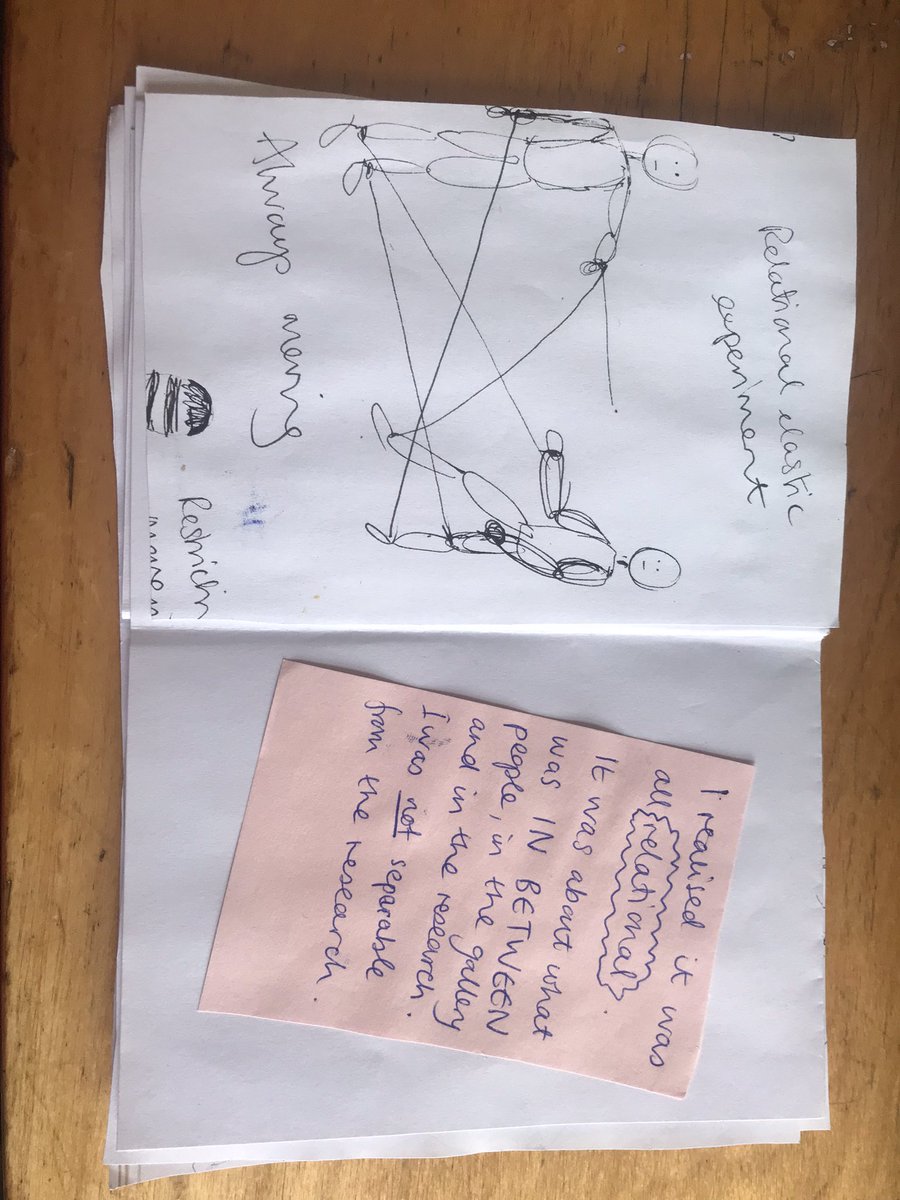 Relational elastic
experiment
Always moving
I realised it was
all relational.
It was about what
was IN BETWEEN
people, in the gallery
and in the research.
I was not separable
from the research.